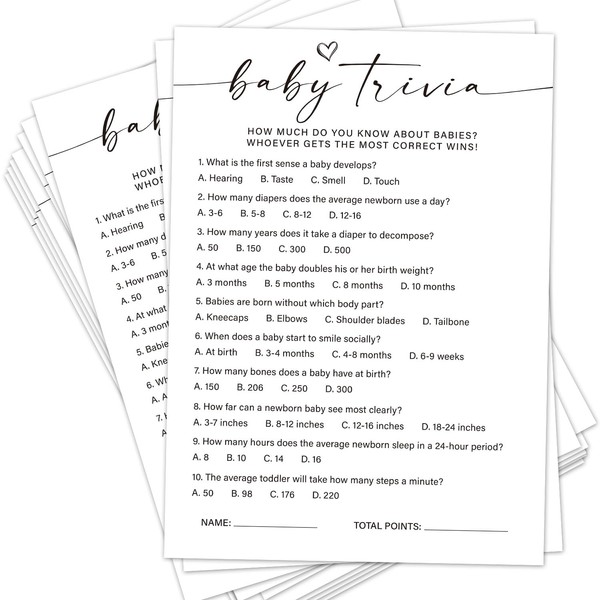 baby trivia
HOW MUCH DO YOU KNOW ABOUT BABIES?
WHOEVER GETS THE MOST CORRECT WINS!
1. What is the first sense a baby develops?
A. Hearing B. Taste C. Smell D. Touch
2. How many diapers does the average newborn use a day?
A. 3-6 B. 5-8 C. 8-12 D. 12-16
3. How many years does it take a diaper to decompose?
A. 50 B. 150 C. 300 D. 500
4. At what age the baby doubles his or her birth weight?
A. 3 months B. 5 months C. 8 months D. 10 months
5. Babies are born without which body part?
A. Kneecaps B. Elbows C. Shoulder blades D. Tailbone
6. When does a baby start to smile socially?
A. At birth B. 3-4 months C. 4-8 months D. 6-9 weeks
7. How many bones does a baby have at birth?
A. 150 B. 206 C. 250 D. 300
8. How far can a newborn baby see most clearly?
A. 3-7 inches B. 8-12 inches C. 12-16 inches D. 18-24 inches
9. How many hours does the average newborn sleep in a 24-hour period?
A. 8 B. 10 C. 14 D. 16
10. The average toddler will take how many steps a minute?
A. 50 B. 98 C. 176 D. 220
NAME: TOTAL POINTS:
bab
HOW
1. What is the firs
A. Hearing B
2. How many d
A. 3-6 B. 5
3. How many
A. 50 B.
4. At what
A. 3 mont
5. Babie
A. Kne
6. Wh
A.
7.
A.